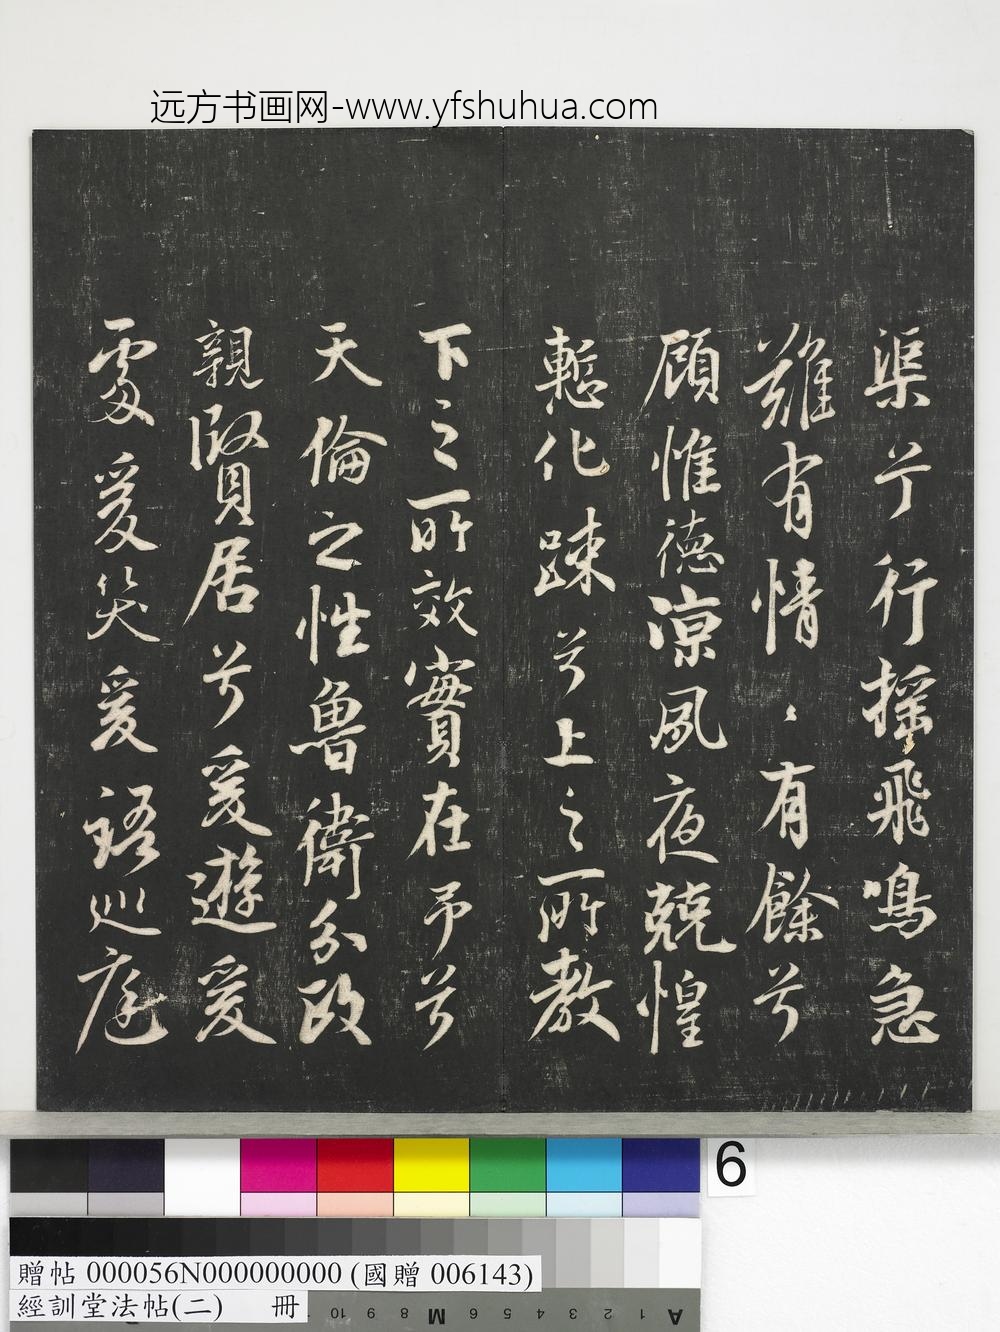 远方书画网-www.yfshuhua.com
渠兮行摇飛鳴急
難有情、有餘兮
顧惟德涼夙夜兢惶
慙化踈兮上之所教
下之所效實在予兮
天倫之性魯衛分政
親賢居兮爰遊爰
處爰笑爰語巡庭
6
贈帖 000056N000000000 (國贈 006143)
經訓堂法帖(二) 冊
A 1 2 3 4 5 6 M 8 9 10